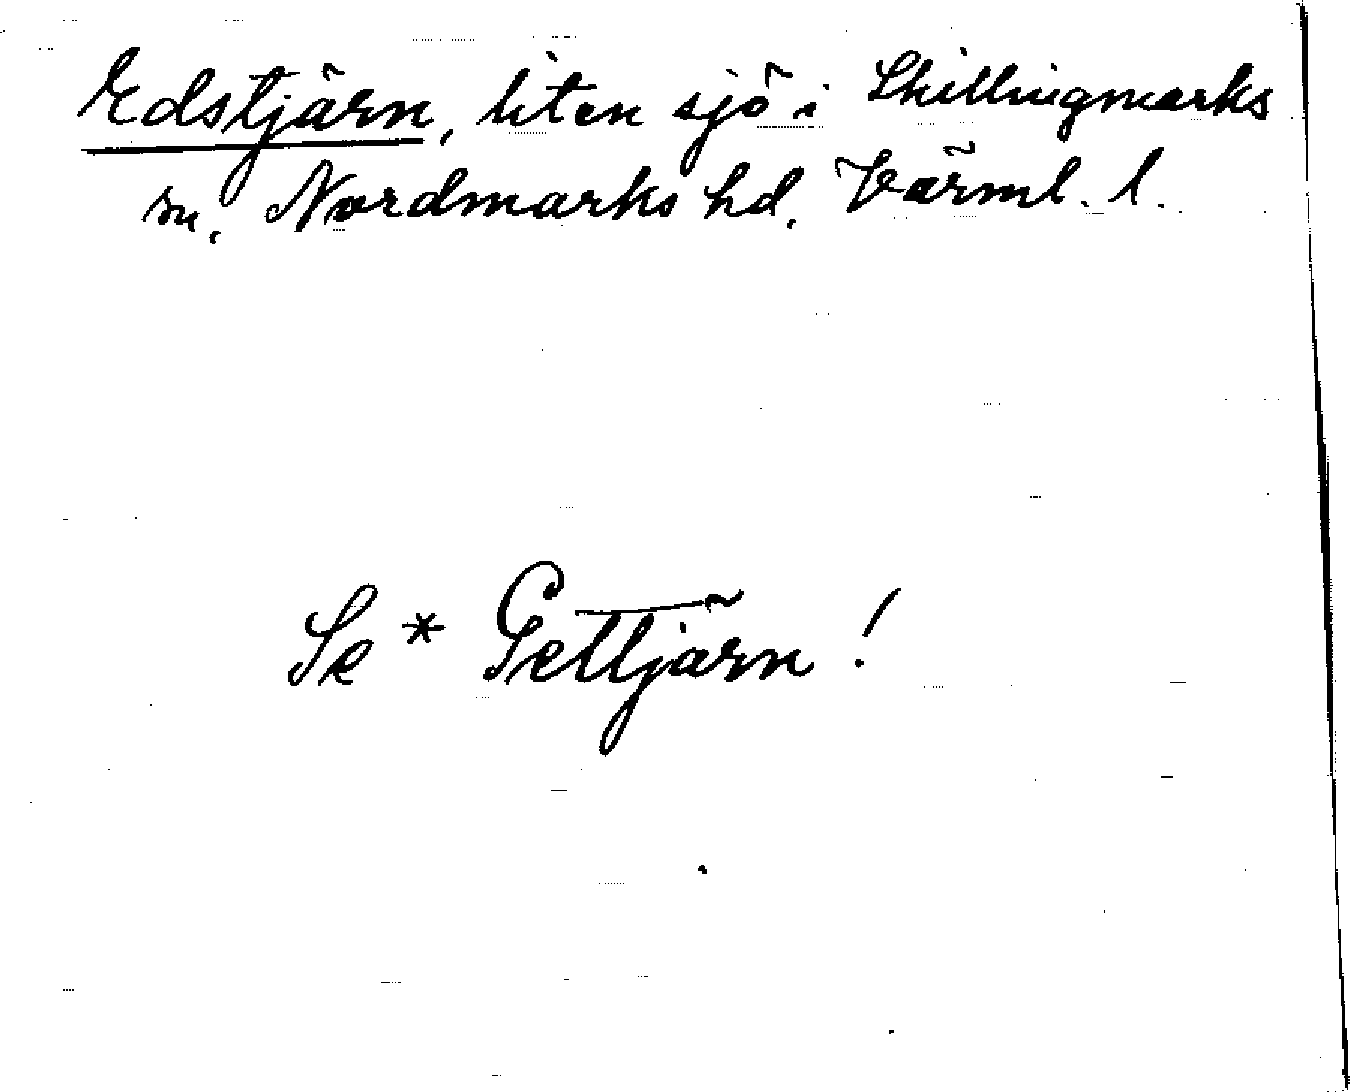 Edstjärn, liten sjö i Skillingmarks
sn, Nordmarks hd, Värml. l.
Se * Gettjärn!